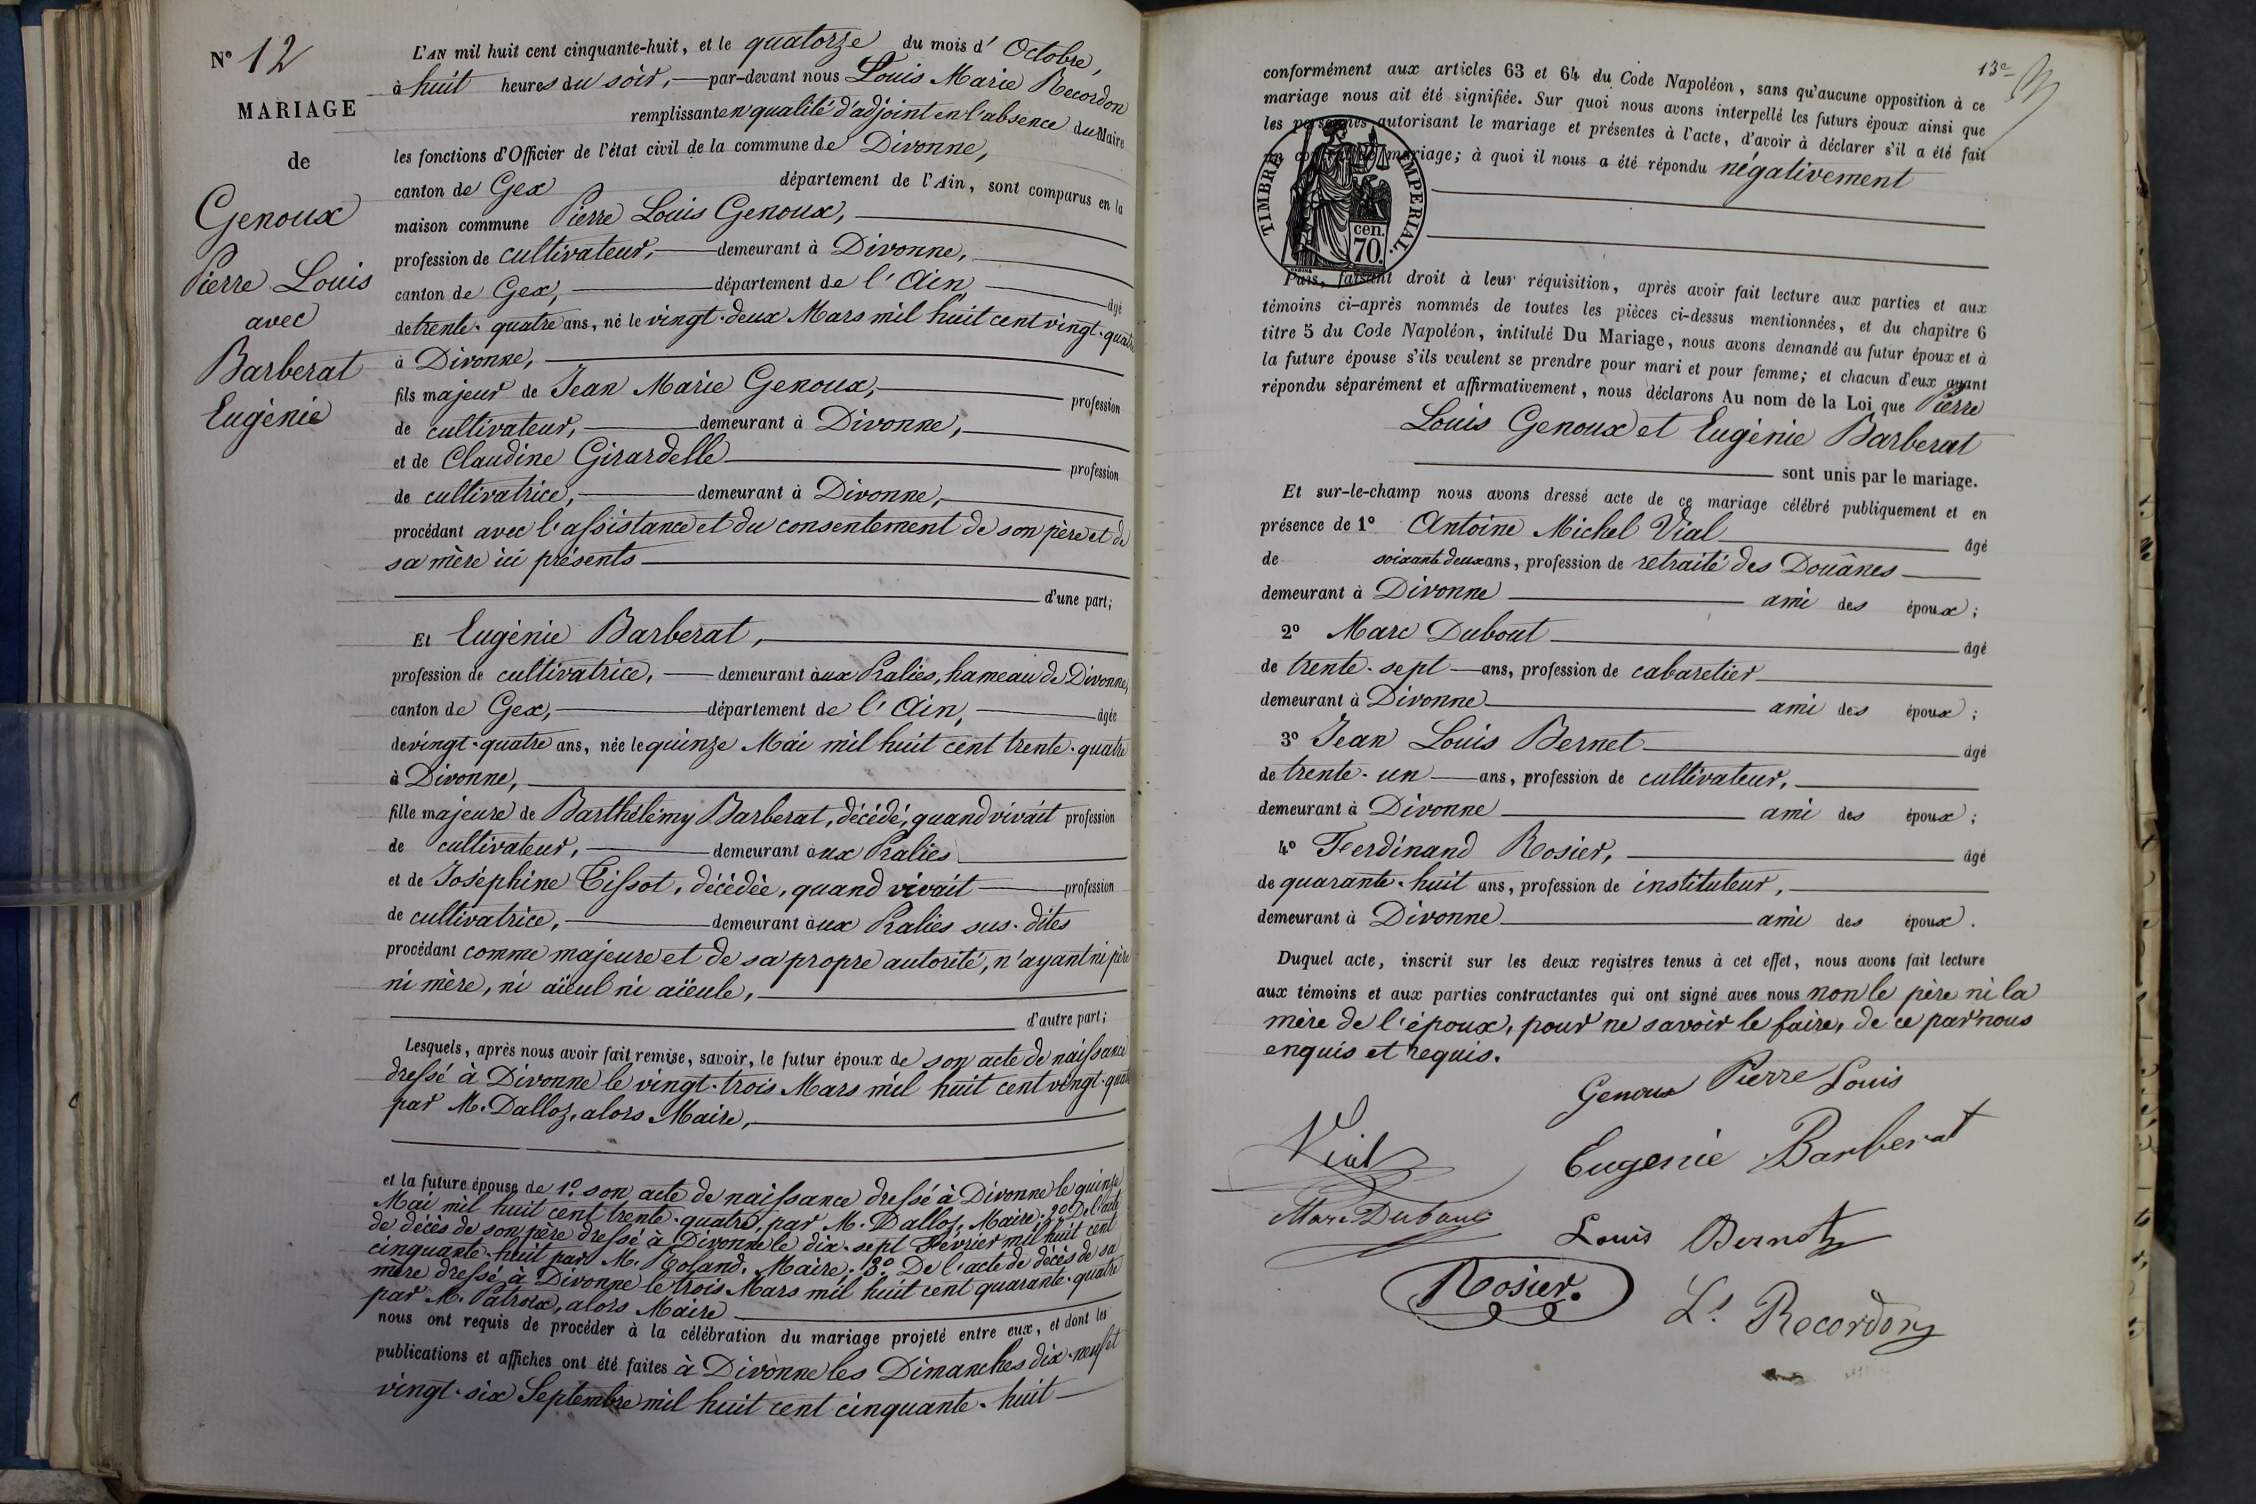 N° 12
MARIAGE
de
Genoux
Pierre Louis
avec
Barberat
Eugénie
L'AN mil huit cent cinquante-huit, et le quatorze du mois d'Octobre,
à huit heures du soir, par-devant nous Louis Marie Recordon
remplissant en qualité d'adjoint en l'absence du Maire
les fonctions d'Officier de l'état civil de la commune de Divonne,
canton de Gex département de l'Ain, sont comparus en la
maison commune Pierre Louis Genoux,
profession de cultivateur, demeurant à Divonne,
canton de Gex, département de l'Ain âgé
de trente-quatre ans, né le vingt-deux Mars mil huit cent vingt-quatre
à Divonne,
fils majeur de Jean Marie Genoux, profession
de cultivateur, demeurant à Divonne,
et de Claudine Girardelle profession
de cultivatrice, demeurant à Divonne,
procédant avec l'assistance et du consentement de son père et de
sa mère ici présents
d'une part;
Et Eugénie Barberat,
profession de cultivatrice, demeurant aux Pralies, hameau de Divonne,
canton de Gex, département de l'Ain, âgée
de vingt-quatre ans, née le quinze Mai mil huit cent trente-quatre
à Divonne,
fille majeure de Barthélémy Barberat, décédé, quand vivait profession
de cultivateur, demeurant aux Pralies
et de Joséphine Tissot, décédée, quand vivait profession
de cultivatrice, demeurant aux Pralies sus-dites
procédant comme majeure et de sa propre autorité, n'ayant ni père
ni mère, ni aïeul ni aïeule,
d'autre part;
Lesquels, après nous avoir fait remise, savoir, le futur époux de son acte de naissance
dressé à Divonne le vingt-trois Mars mil huit cent vingt-quatre
par M. Dalloz, alors Maire,
et la future épouse de 1° son acte de naissance dressé à Divonne le quinze
Mai mil huit cent trente-quatre, par M. Dalloz, Maire. 2° De l'acte
de décès de son père dressé à Divonne le dix-sept Février mil huit cent
cinquante-huit par M. Roland, Maire. 3° De l'acte de décès de sa
mère dressé à Divonne le trois Mars mil huit cent quarante-quatre
par M. Patroix, alors Maire
nous ont requis de procéder à la célébration du mariage projeté entre eux, et dont les
publications et affiches ont été faites à Divonne les Dimanches dix-neuf et
vingt-six Septembre mil huit cent cinquante-huit
13e
conformément aux articles 63 et 64 du Code Napoléon, sans qu'aucune opposition à ce
mariage nous ait été signifiée. Sur quoi nous avons interpellé les futurs époux ainsi que
les personnes autorisant le mariage et présentes à l'acte, d'avoir à déclarer s'il a été fait
un contrat de mariage; à quoi il nous a été répondu négativement
TIMBRE IMPERIAL.
cen.
70.
Puis, faisant droit à leur réquisition, après avoir fait lecture aux parties et aux
témoins ci-après nommés de toutes les pièces ci-dessus mentionnées, et du chapitre 6
titre 5 du Code Napoléon, intitulé Du Mariage, nous avons demandé au futur époux et à
la future épouse s'ils veulent se prendre pour mari et pour femme; et chacun d'eux ayant
répondu séparément et affirmativement, nous déclarons Au nom de la Loi que Pierre
Louis Genoux et Eugénie Barberat
sont unis par le mariage.
Et sur-le-champ nous avons dressé acte de ce mariage célébré publiquement et en
présence de 1° Antoine Michel Vial âgé
de soixante deux ans, profession de retraité des Douânes
demeurant à Divonne ami des époux;
2° Marc Dubout âgé
de trente-sept ans, profession de cabaretier
demeurant à Divonne ami des époux;
3° Jean Louis Bernet âgé
de trente-un ans, profession de cultivateur,
demeurant à Divonne ami des époux;
4° Ferdinand Rosier, âgé
de quarante-huit ans, profession de instituteur,
demeurant à Divonne ami des époux.
Duquel acte, inscrit sur les deux registres tenus à cet effet, nous avons fait lecture
aux témoins et aux parties contractantes qui ont signé avec nous non le père ni la
mère de l'époux, pour ne savoir le faire, de ce par nous
enquis et requis.
Genoux Pierre Louis
Vial
Eugenie Barberat
Marc Dubout
Louis Bernet
Rosier.
Ls Recordon